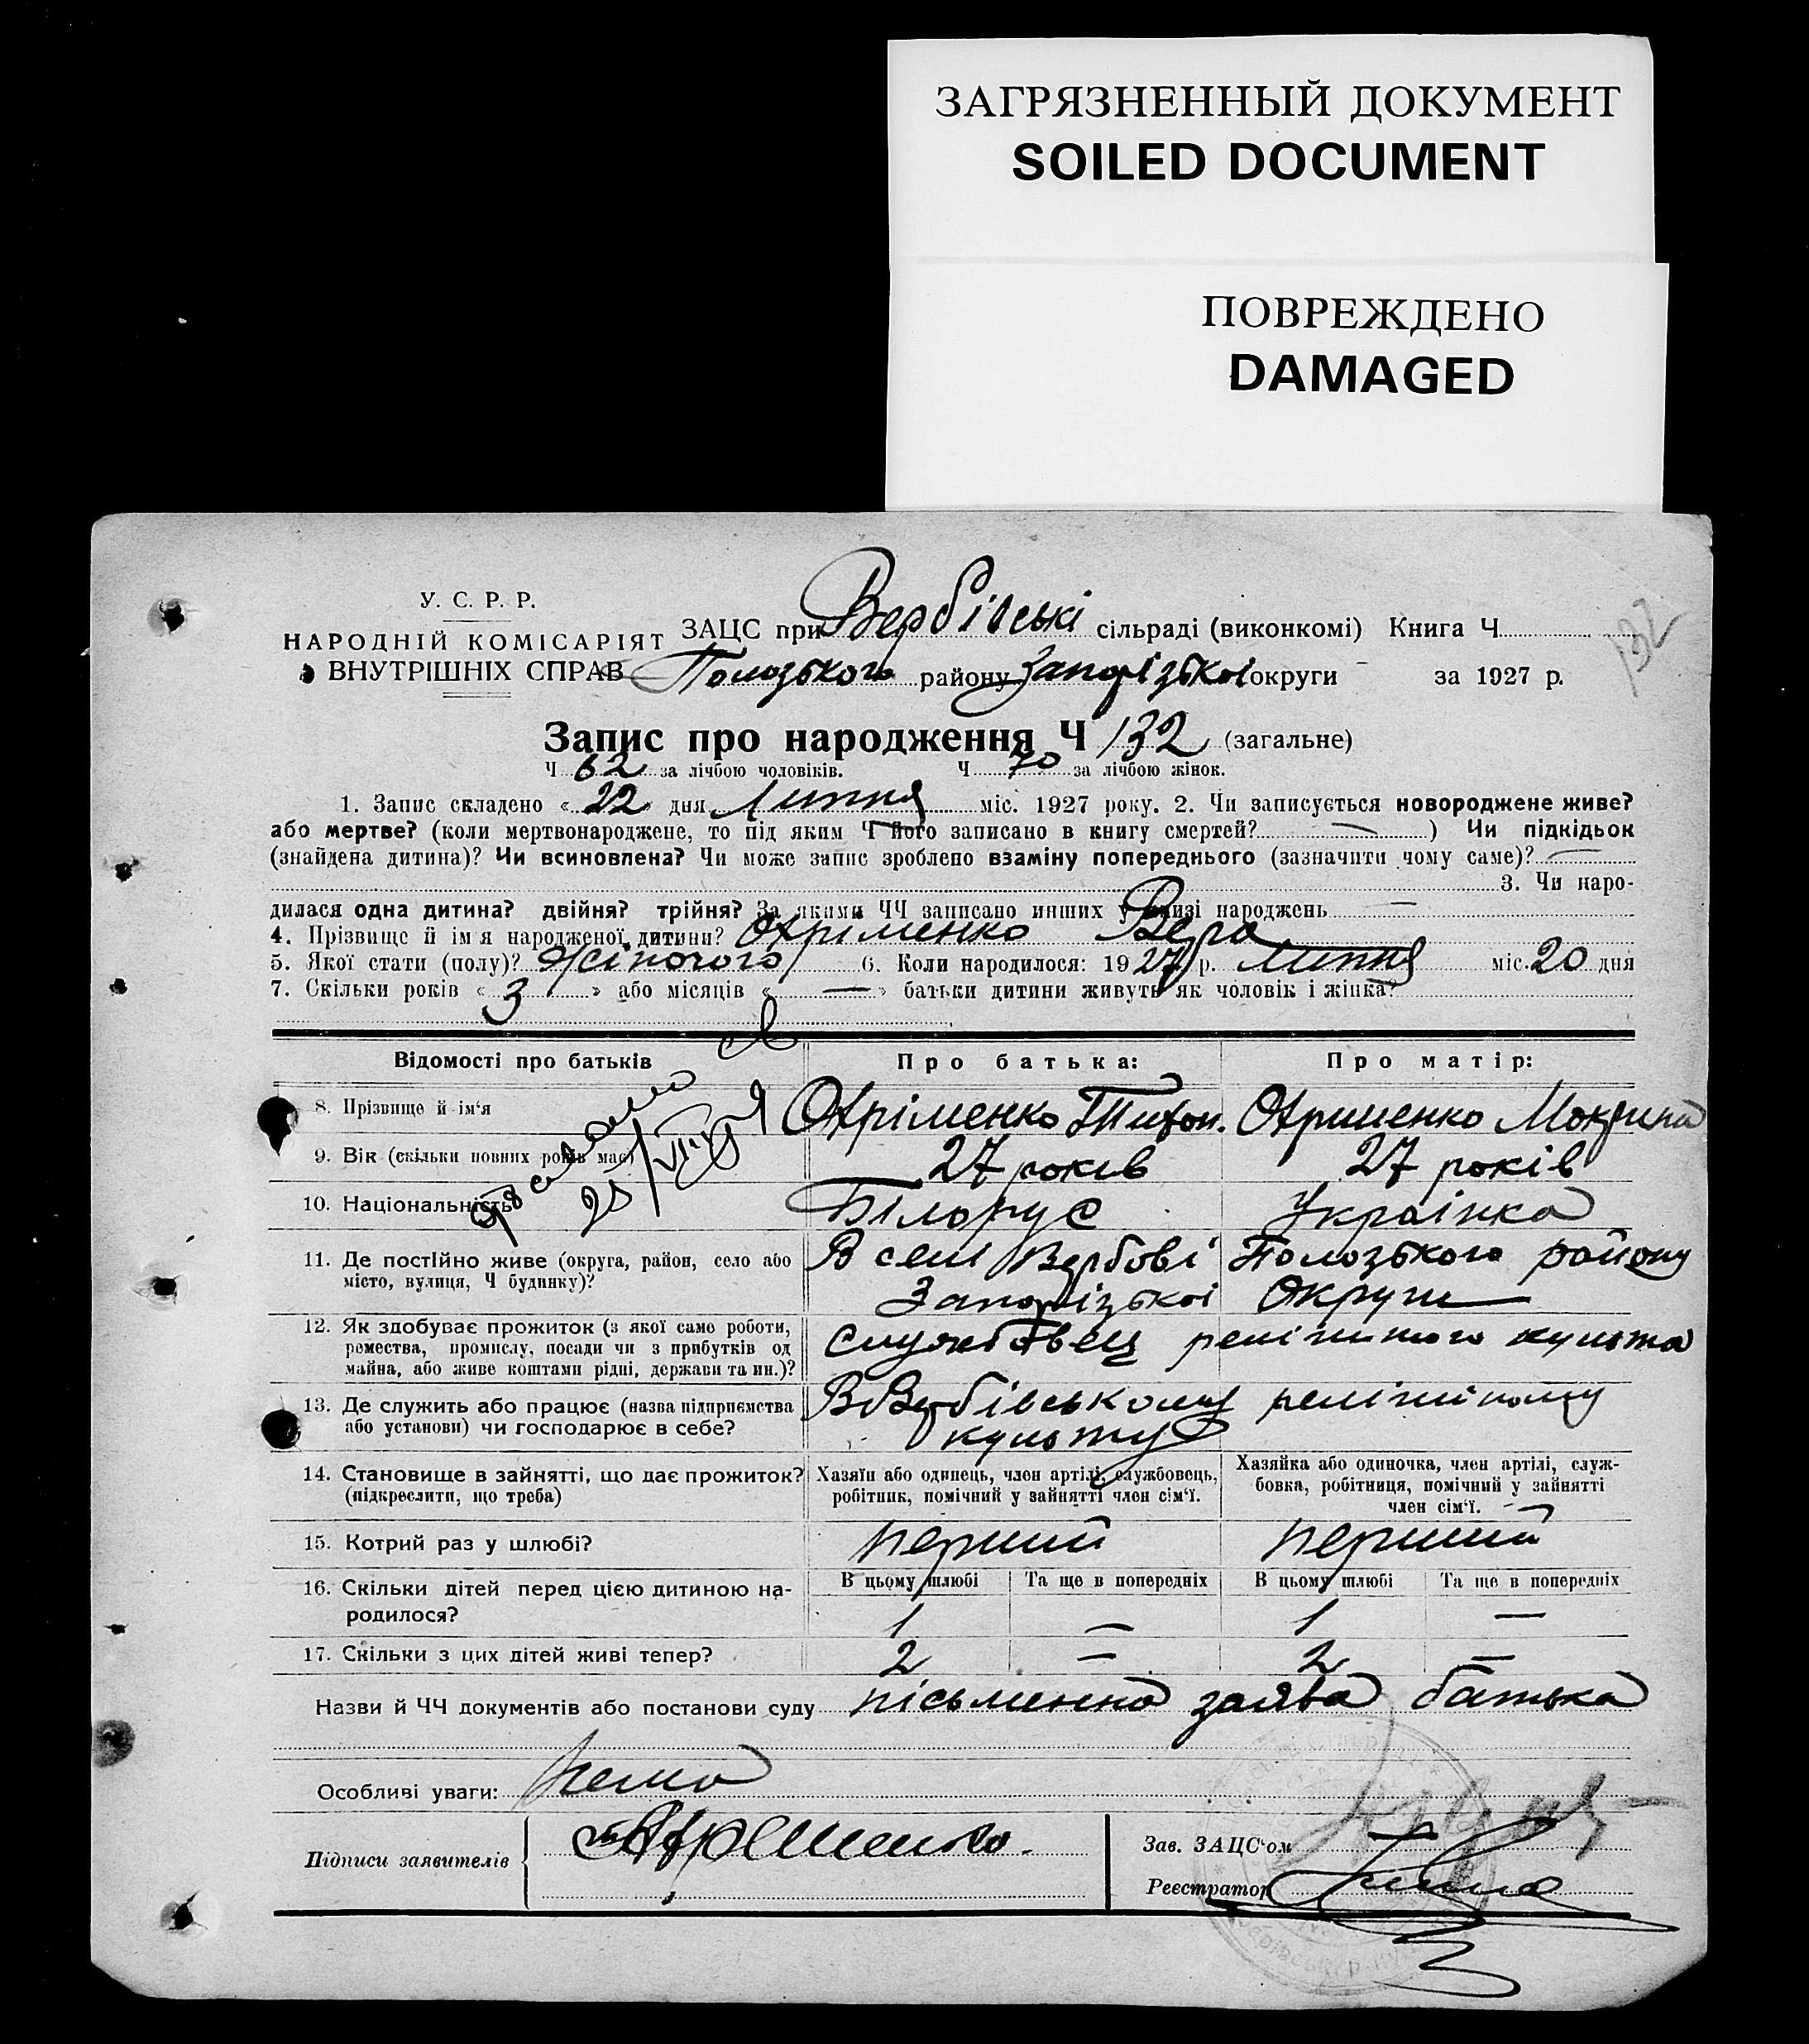 ЗАГРЯЗНЕННЫЙ ДОКУМЕНТ
SOILED DOCUMENT
ПОВРЕЖДЕНО
DAMAGED
132
У. С. Р. Р.
НАРОДНІЙ КОМІСАРІЯТ
ВНУТРІШНІХ СПРАВ
ЗАЦС при Вербівські сільраді (виконкомі) Книга Ч
Полозького району Запорізькоі округи за 1927 р.
Запис про народження Ч 132 (загальне)
Ч 62 за лічбою чоловіків. Ч 70 за лічбою жінок.
1. Запис складено « 22 » дня Липня міс. 1927 року. 2. Чи записується новороджене живе?
або мертве? (коли мертвонароджене, то під яким Ч його записано в книгу смертей? — ) Чи підкідьок
(знайдена дитина)? Чи всиновлена? Чи може запис зроблено взаміну попереднього (зазначити чому саме)? —
3. Чи наро-
дилася одна дитина? двійня? трійня? За якими ЧЧ записано инших у книзі народжень —
4. Прізвище й ім'я народженої дитини? Охріменко Вера
5. Якої стати (полу)? Жіночого 6. Коли народилося: 1927 р. Липня міс. 20 дня
7. Скільки років « 3 » або місяців « — » батьки дитини живуть як чоловік і жінка?
Відомості про батьків Про батька: Про матір:
8. Прізвище й ім'я Охріменко Тихон. Охрименко Мокрина
9. Вік (скільки повних років має) 27 років 27 років
10. Національність Білорус Украінка
11. Де постійно живе (округа, район, село або В селі Вербові Полозького району
місто, вулиця, Ч будинку)? Запорізькоі Округи
12. Як здобуває прожиток (з якої само роботи, службовец релігиного культа
ремества, промислу, посади чи з прибутків од
майна, або живе коштами рідні, держави та ин.)?
13. Де служить або працює (назва підприємства В Вербівському релігийному
або установи) чи господарює в себе? культу
14. Становище в зайнятті, що дає прожиток? Хазяїн або одинець, член артілі, службовець, Хазяйка або одиночка, член артілі, служ-
(підкреслити, що треба) робітник, помічний у зайнятті член сім'ї. бовка, робітниця, помічний у зайнятті
член сім'ї.
15. Котрий раз у шлюбі? перший перший
16. Скільки дітей перед цією дитиною на- В цьому шлюбі Та ще в попередніх В цьому шлюбі Та ще в попередніх
родилося? 1 — 1 —
17. Скільки з цих дітей живі тепер? 2 — 2 —
Назви й ЧЧ документів або постанови суду пісьменна заява батька
Особливі уваги: Нема
Підписи заявителів
Зав. ЗАЦС'ом
Реєстратор